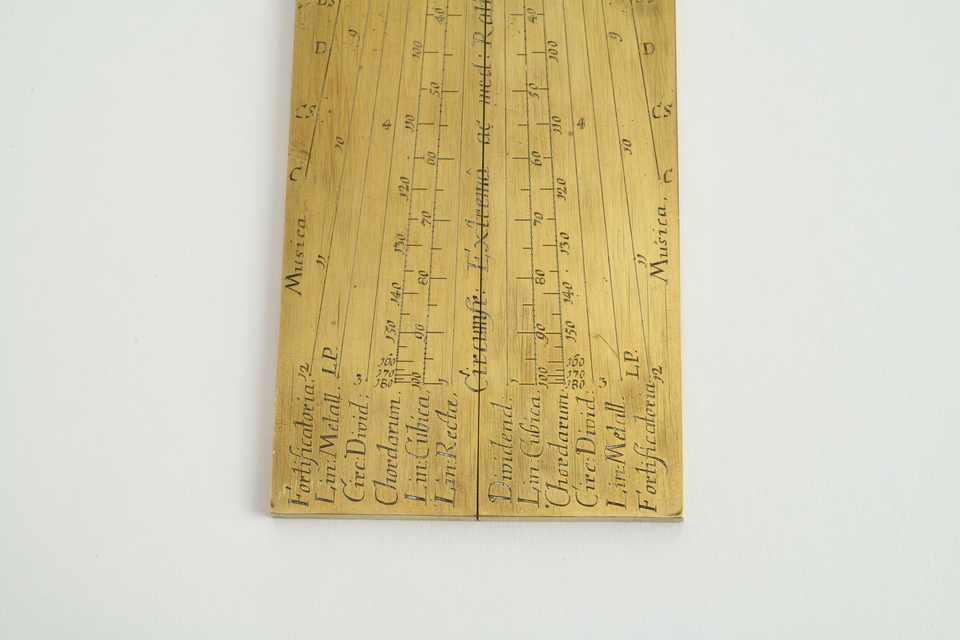 Fortificatoria. 12
Lin: Metall. L.P.
Circ: Divid: 3
Chordarum. 180 170 160 150 140 130 120 110 100
Lin: Cubica. 100 90 80 70 60 50 40
Lin: Rectæ,
Musica C C D
11 10 9
4
Circumfr: Extremâ ac med:
Dividend.
Lin: Cubica. 100 90 80 70 60 50 40
Chordarum 180 170 160 150 140 130 120 110 100
Circ: Divid: 3
Lin: Metall. L.P.
Fortificatoria 12
Musica, C C D
11 10 9
4